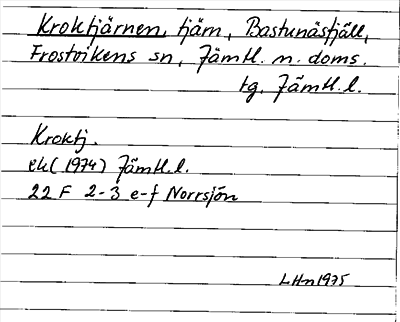 Kroktjärnen, tjärn, Bastunäsfjäll,
Frostvikens sn, Jämtl. n. doms.
tg, Jämtl. l.
Kroktj.
ek (1974) Jämtl. l.
22 F 2-3 e-f Norrsjön
LHm 1975